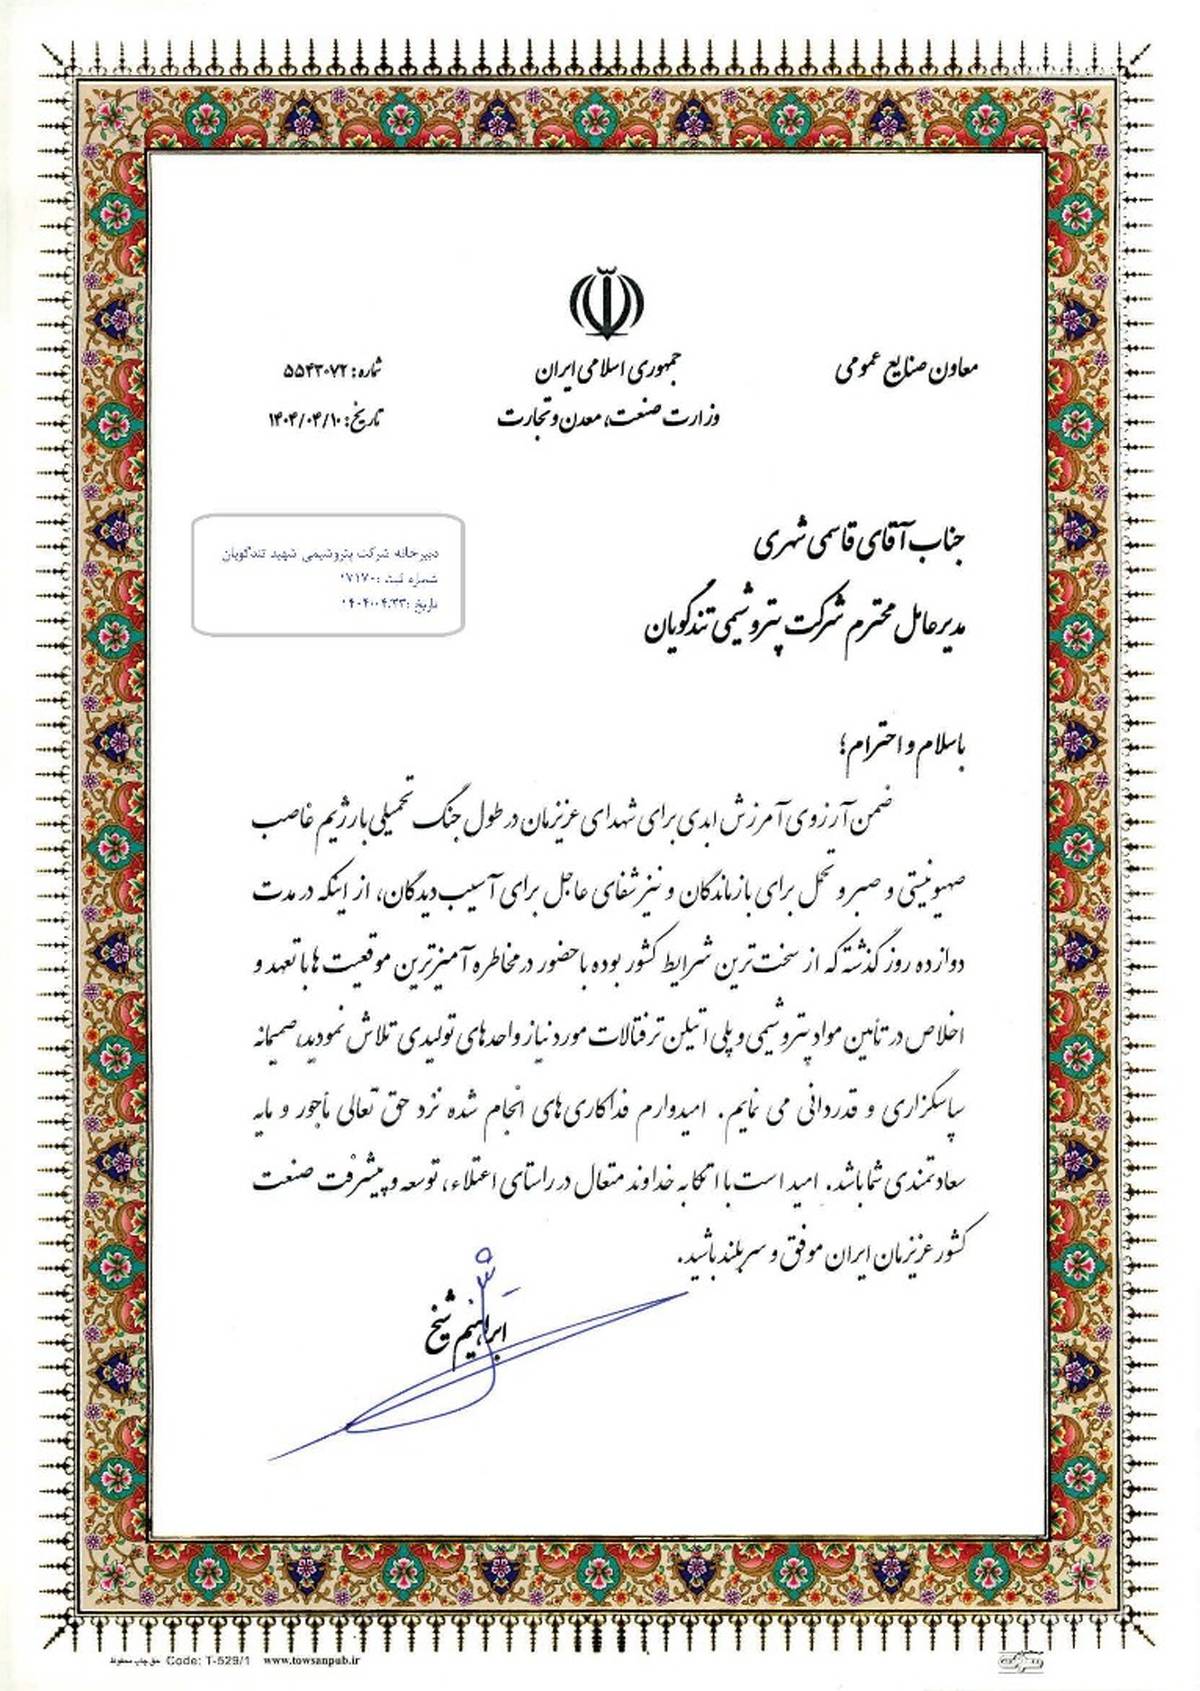 جمهوری اسلامی ایران
وزارت صنعت، معدن و تجارت
معاون صنایع عمومی
شماره: ۵۵۴۳۰۷۲
تاریخ: ۱۴۰۴/۰۴/۱۰
دبیرخانه شرکت پتروشیمی شهید تندگویان
شماره ثبت :۱۷۱۷۰
تاریخ :۱۴۰۴/۰۴/۲۳
جناب آقای قاسمی شهری
مدیرعامل محترم شرکت پتروشیمی تندگویان
باسلام و احترام؛
ضمن آرزوی آمرزش ابدی برای شهدای عزیزمان در طول جنگ تحمیلی با رژیم غاصب
صهیونیستی و صبر و تحمل برای بازماندگان و نیز شفای عاجل برای آسیب دیدگان، از اینکه در مدت
دوازده روز گذشته که از سخت‌ترین شرایط کشور بوده با حضور در مخاطره آمیزترین موقعیت ها با تعهد و
اخلاص در تأمین مواد پتروشیمی و پلی اتیلن ترفتالات مورد نیاز واحدهای تولیدی تلاش نمودید، صمیمانه
سپاسگزاری و قدردانی می نمایم. امیدوارم فداکاری‌های انجام شده نزد حق تعالی مأجور و مایه
سعادتمندی شما باشد. امید است با اتکا به خداوند متعال در راستای اعتلاء، توسعه و پیشرفت صنعت
کشور عزیزمان ایران موفق و سربلند باشید.
ابراهیم شیخ
حق چاپ محفوظ Code: T-529/1 www.towsanpub.ir